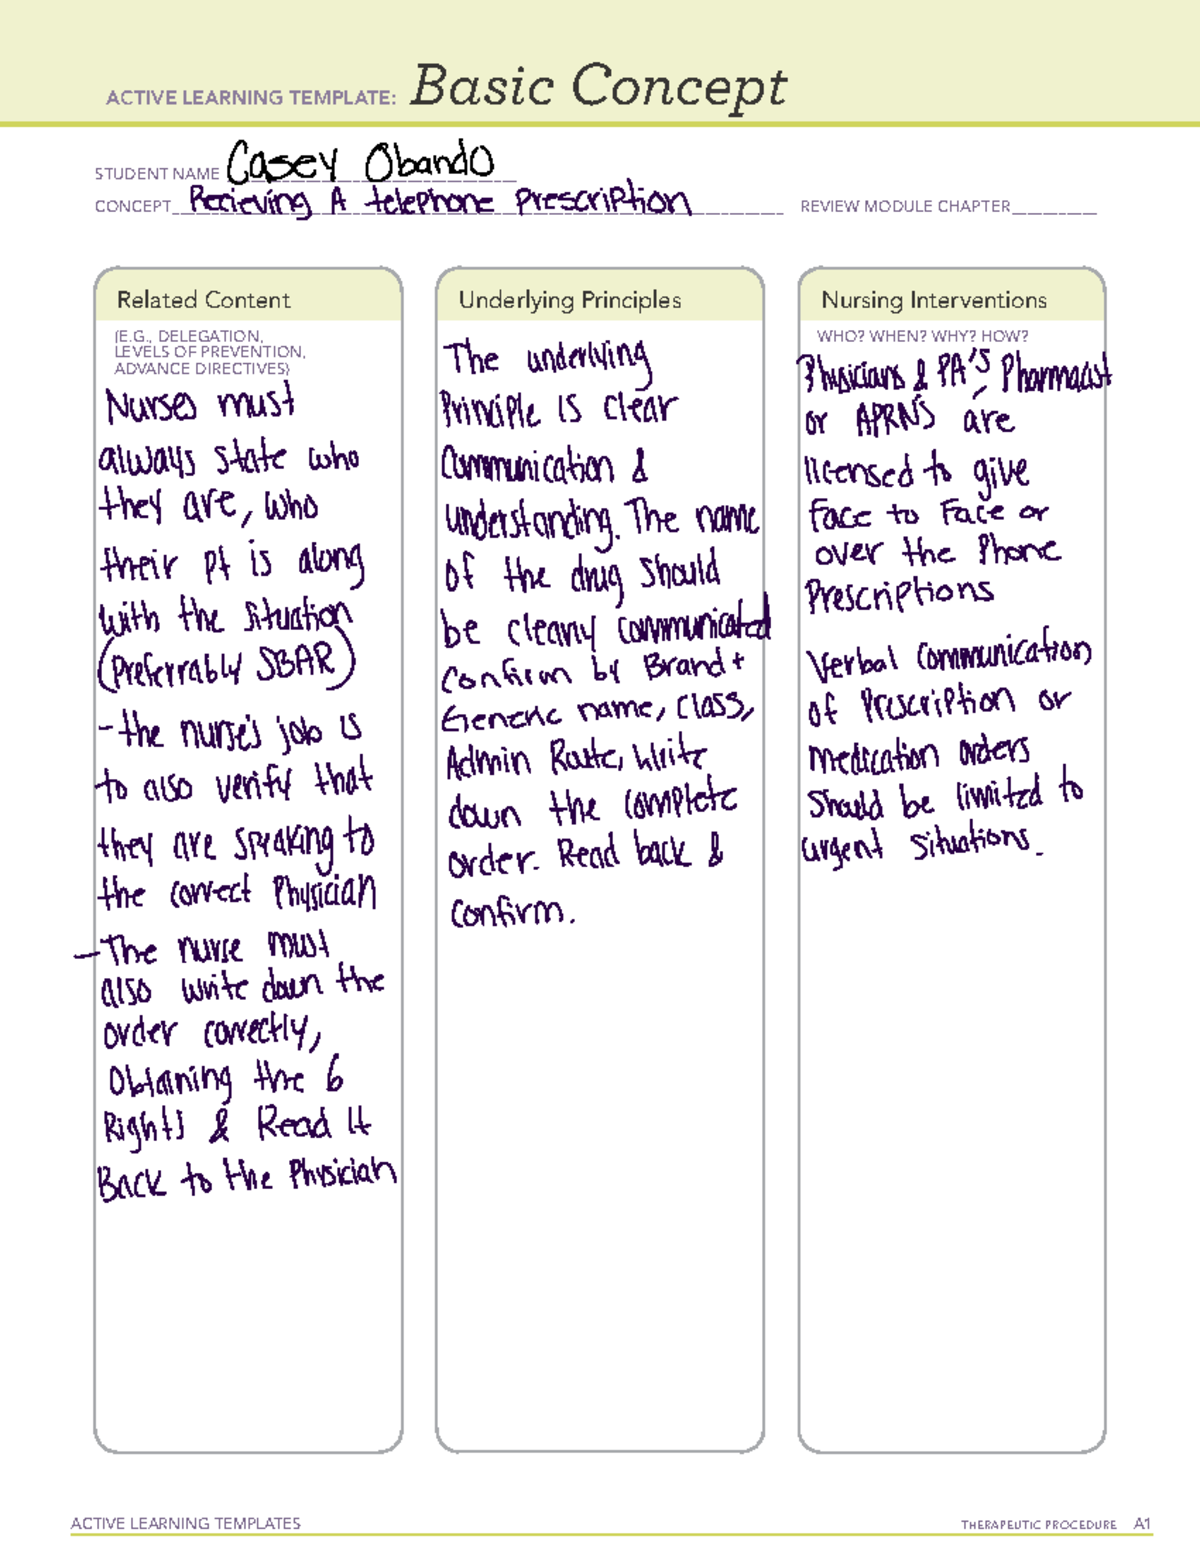 ACTIVE LEARNING TEMPLATE: Basic Concept
STUDENT NAME Casey Obando
CONCEPT Recieving A telephone Prescription REVIEW MODULE CHAPTER
Related Content
(E.G., DELEGATION,
LEVELS OF PREVENTION,
ADVANCE DIRECTIVES)
Nurses must
always state who
they are, who
their pt is along
with the situation
(Preferrably SBAR)
- the nurse's job is
to also verify that
they are speaking to
the correct Physician
- The nurse must
also write down the
order correctly,
Obtaining the 6
Rights & Read It
Back to the Physician
Underlying Principles
The underlying
Principle is clear
Communication &
understanding. The name
of the drug should
be clearly communicated
Confirm by Brand +
Generic name, class,
Admin Route, Write
down the complete
order. Read back &
Confirm.
Nursing Interventions
WHO? WHEN? WHY? HOW?
Physicians & PA'S, Pharmacist
or APRN'S are
licensed to give
Face to Face or
over the Phone
Prescriptions
Verbal Communication
of Prescription or
medication orders
should be limited to
urgent situations.
ACTIVE LEARNING TEMPLATES
THERAPEUTIC PROCEDURE A1